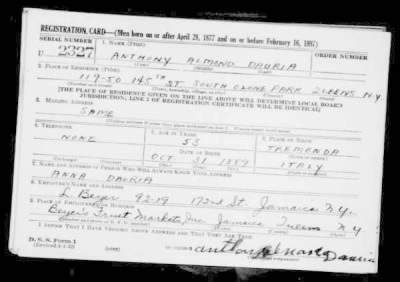 REGISTRATION CARD—(Men born on or after April 28, 1877 and on or before February 16, 1897)
SERIAL NUMBER 1. NAME (Print) ORDER NUMBER
U 2327 ANTHONY ALMOND DAURIA
2. PLACE OF RESIDENCE (Print)
119-50 145TH ST SOUTH OZONE PARK QUEENS N.Y.
[THE PLACE OF RESIDENCE GIVEN ON THE LINE ABOVE WILL DETERMINE LOCAL BOARD
JURISDICTION; LINE 2 OF REGISTRATION CERTIFICATE WILL BE IDENTICAL]
3. MAILING ADDRESS
SAME
4. TELEPHONE 5. AGE IN YEARS 6. PLACE OF BIRTH
NONE 53 TREMONDA
DATE OF BIRTH
OCT 31 1889 ITALY
7. NAME AND ADDRESS OF PERSON WHO WILL ALWAYS KNOW YOUR ADDRESS
ANNA DAURIA
8. EMPLOYER'S NAME AND ADDRESS
L Beyer 92-19 172nd St. Jamaica N.Y.
9. PLACE OF EMPLOYMENT OR BUSINESS
Market Inc Jamaica Queens N.Y.
I AFFIRM THAT I HAVE VERIFIED ABOVE ANSWERS AND THAT THEY ARE TRUE.
D. S. S. Form 1
Dauria